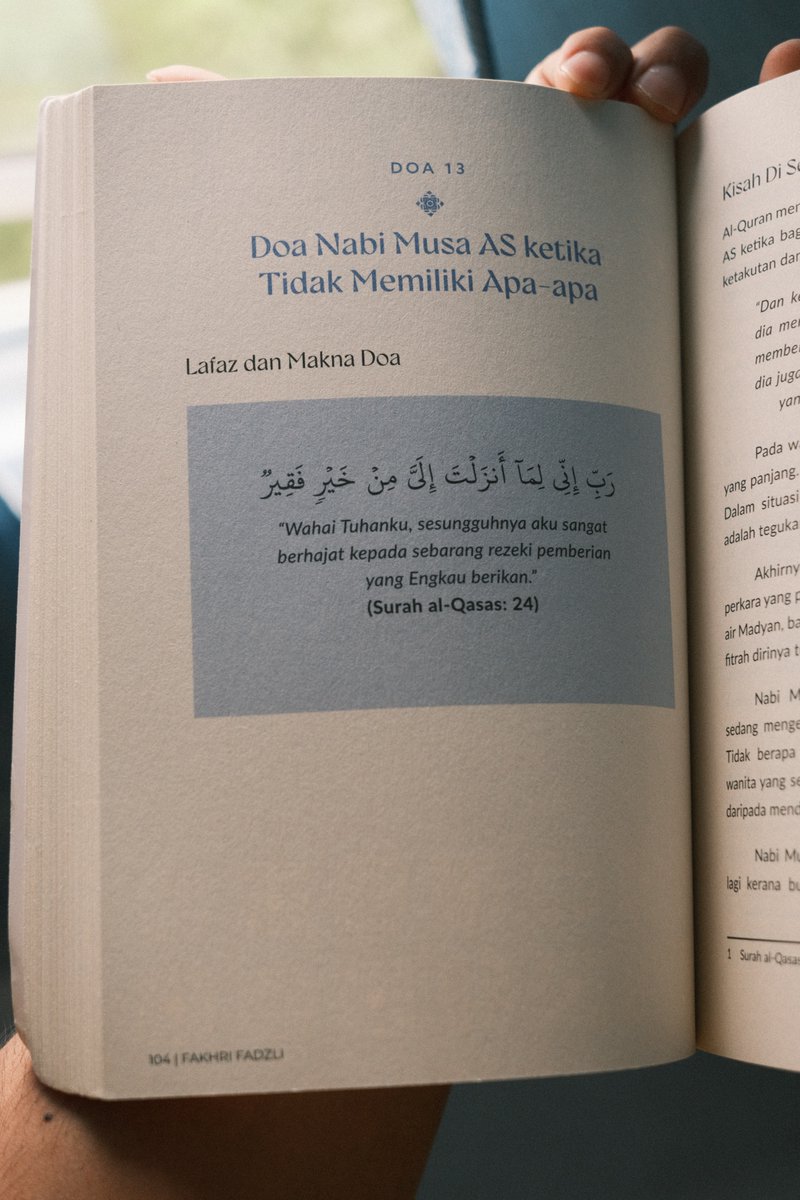 DOA 13
Doa Nabi Musa AS ketika
Tidak Memiliki Apa-apa
Lafaz dan Makna Doa
رَبِّ إِنِّي لِمَآ أَنزَلْتَ إِلَيَّ مِنْ خَيْرٍ فَقِيرٌ
“Wahai Tuhanku, sesungguhnya aku sangat
berhajat kepada sebarang rezeki pemberian
yang Engkau berikan.”
(Surah al-Qasas: 24)
104 | FAKHRI FADZLI
Kisah Di
Al-Quran
AS ketika
ketakutan
“Dan
dia
dia
Pada
yang panjang.
Dalam situasi
adalah
perkara yang
air Madyan,
fitrah dirinya
Nabi
sedang
Tidak berapa
wanita yang
daripada
Nabi
lagi kerana
1 Surah